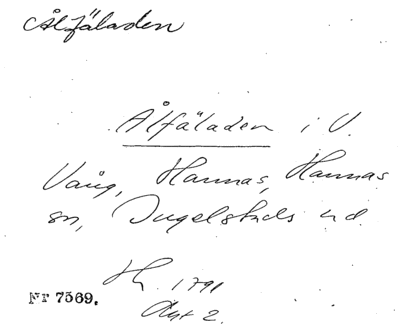 Ålfäladen
Ålfäladen i V.
Vång, Hannas, Hannas
sn, Ingelstads hd.
H. 1791
Akt 2.
Nr 7569.